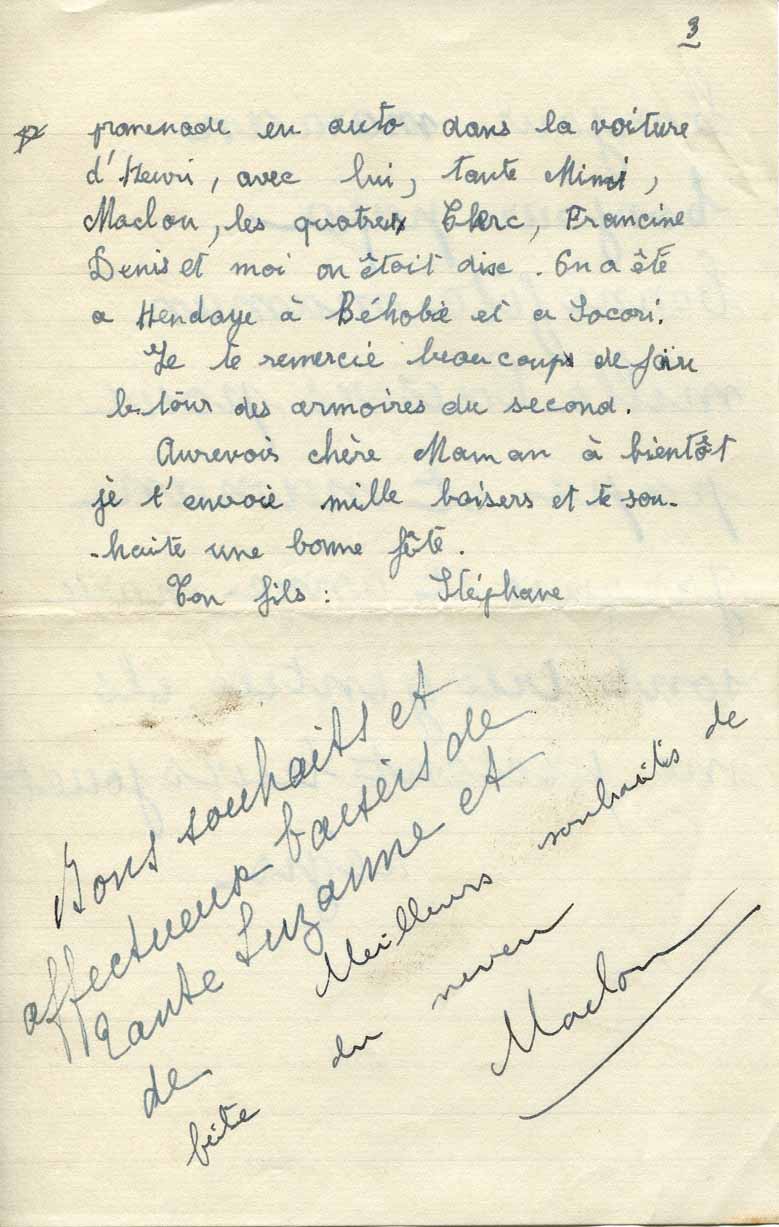 3
promenade en auto dans la voiture
d'Henri, avec lui, tante Mimi,
Maclou, les quatres Clerc, Francine
Denis et moi on êtait disc. On a êtê
a Hendaye à Béhobie et a Socori.
Je te remercie beaucoups de fair
le tour des armoires du second.
Aurevois chère Maman à bientôt
je t'envoie mille baisers et te sou-
-haite une bonne fête.
Ton fils : Stéphane
Bons souhaits et
affectueux baisers de
Tante Suzanne et
de
Meilleurs souhaits de
fête du neveu
Maclou